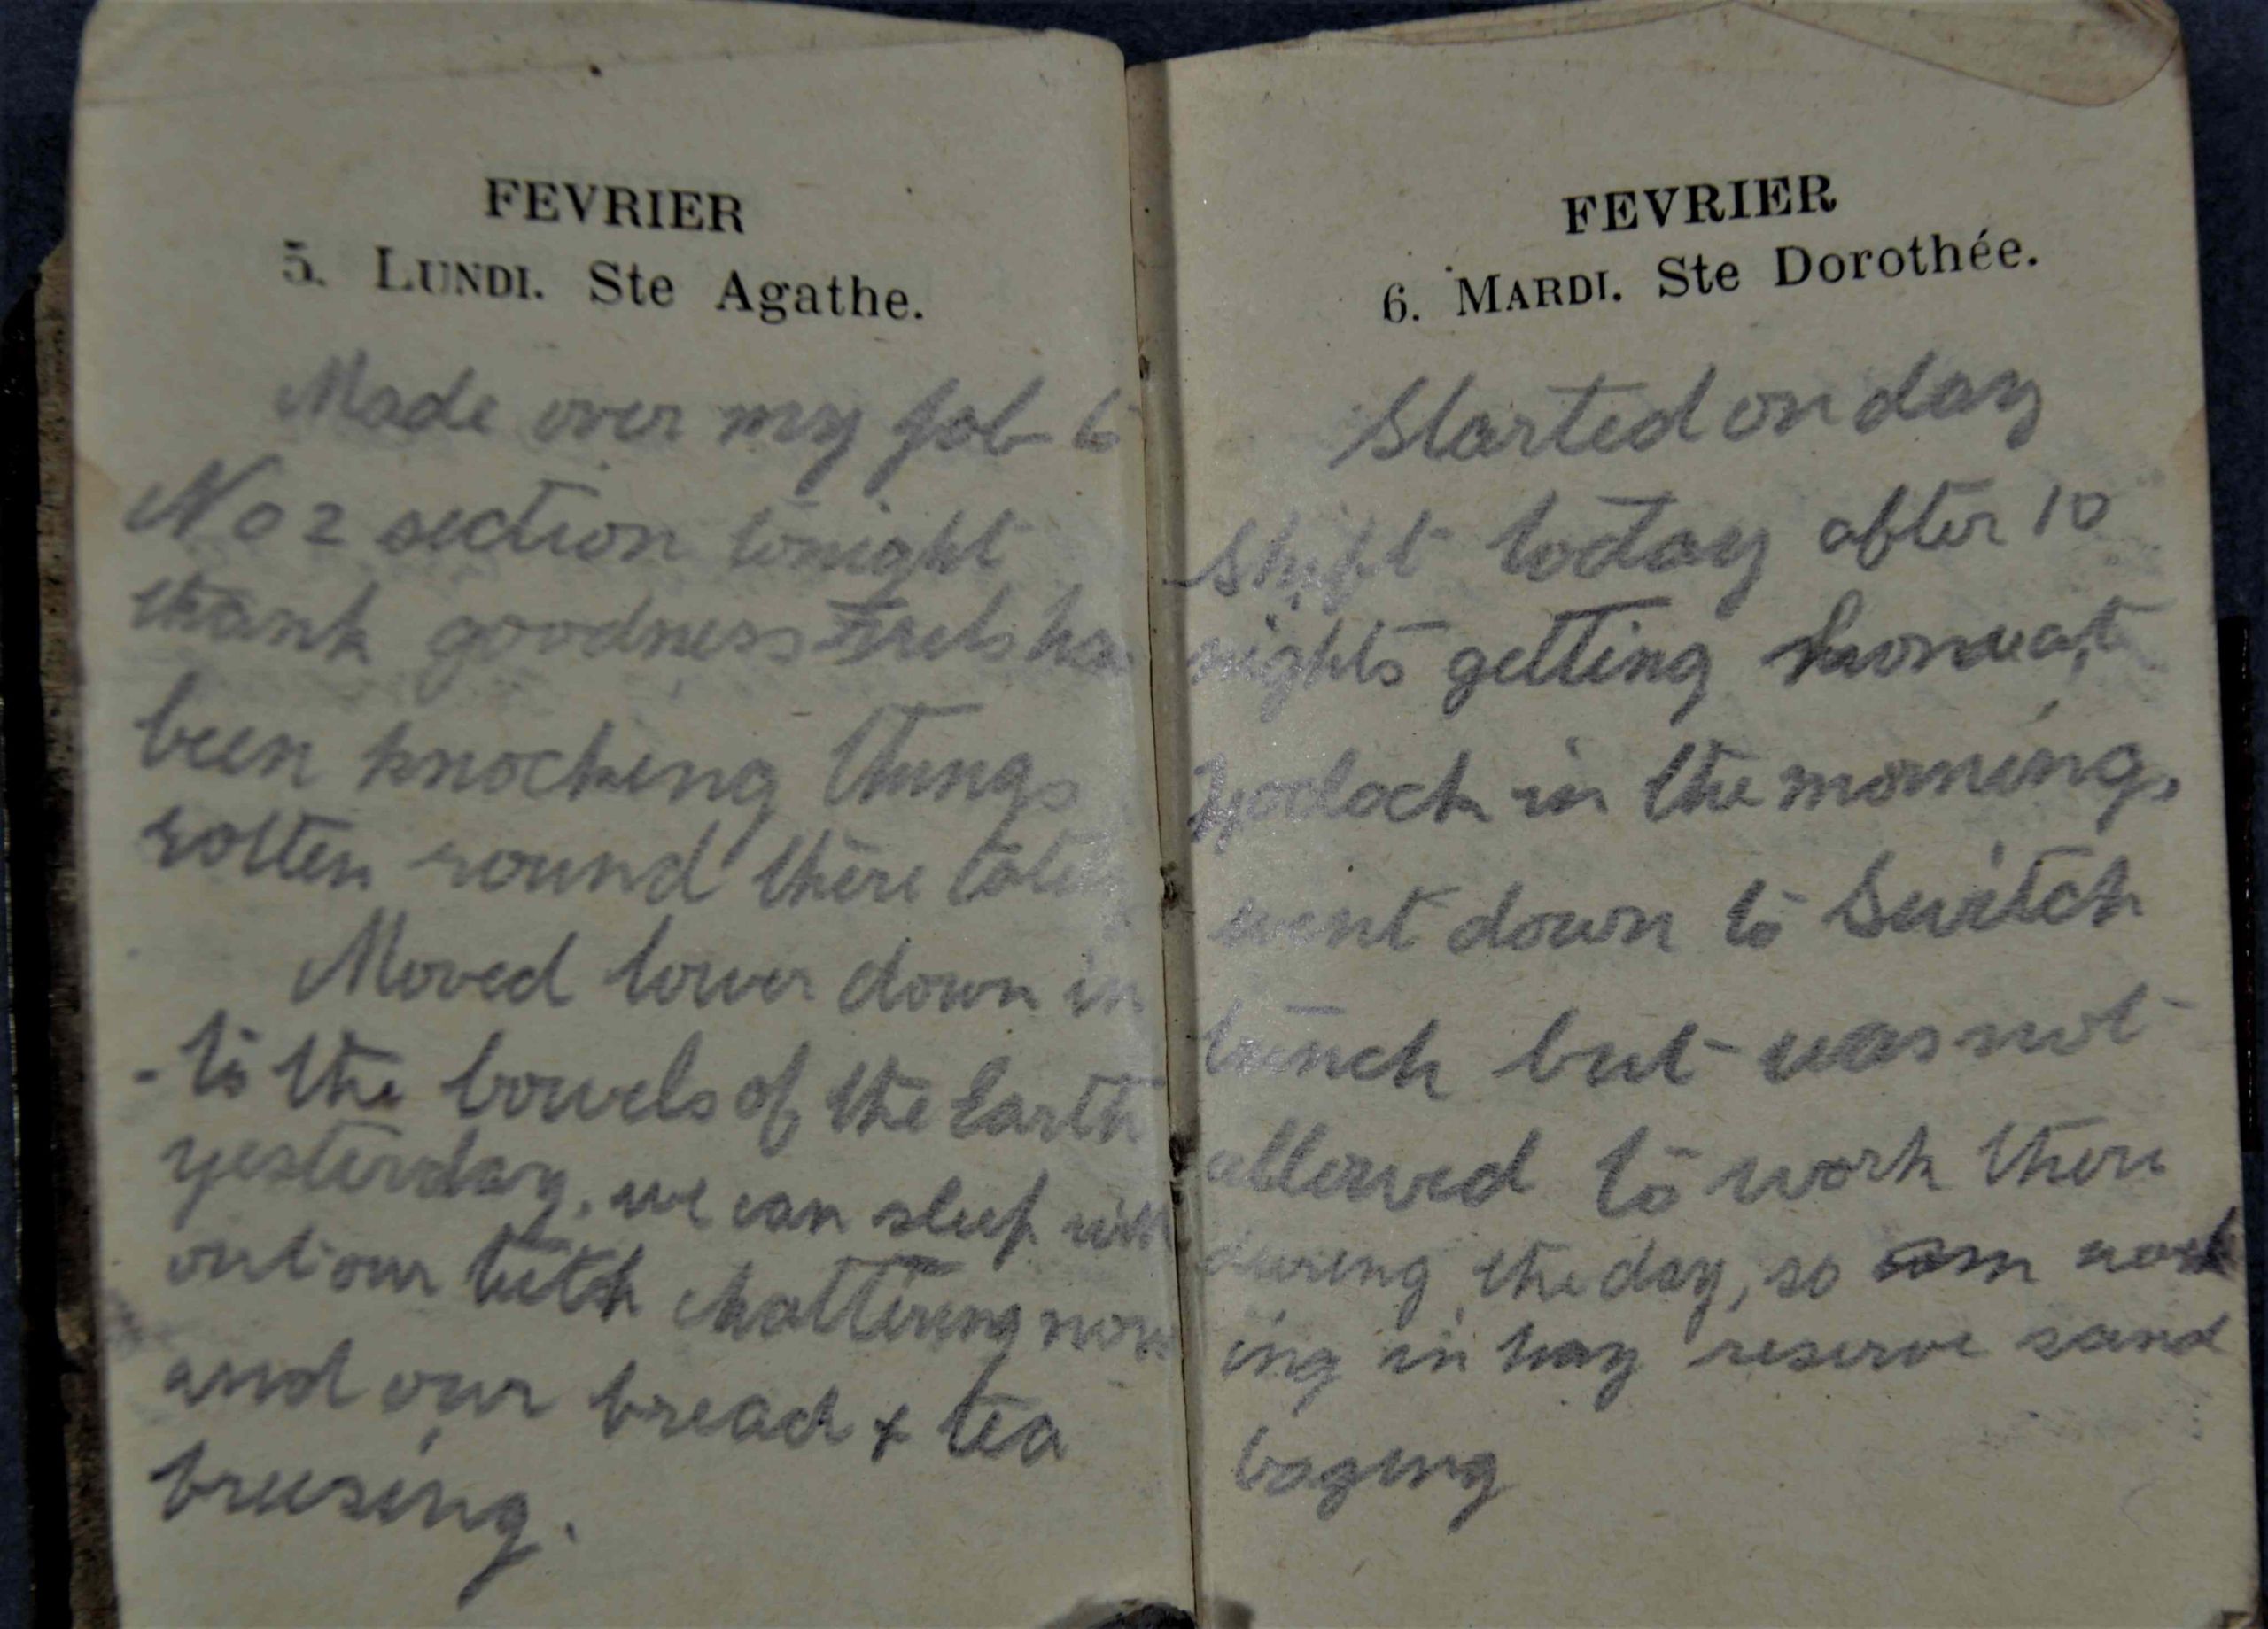 FEVRIER
5. LUNDI. Ste Agathe.
Made over my job to
No 2 section tonight
thank goodness Fritz has
been knocking things
rotten round there lately
Moved lower down in
-to the bowels of the Earth
yesterday, we can sleep with
out our teeth chattering now
and our bread & tea
freesing.
FEVRIER
6. MARDI. Ste Dorothée.
Started on day
shift today after 10
nights getting home at
7 oclock in the morning,
went down to Switch
trench but was not
allowed to work there
during the day, so am work
ing in hay reserve sand
baging